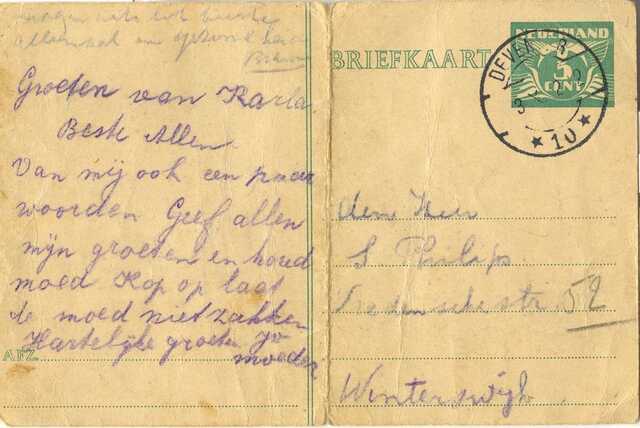 allemaal en gezond
Groeten van Karla
Beste Allen.
Van mij ook een paar
woorden Geef allen
mijn groeten en houd
moed Kop op laat
de moed niet zakken
Hartelijke groeten Jo
moeder
AFZ.
NEDERLAND
5
CENT
BRIEFKAART
DEVENTER
★ 10 ★
den Heer
S Philips
str 52
Winterswijk